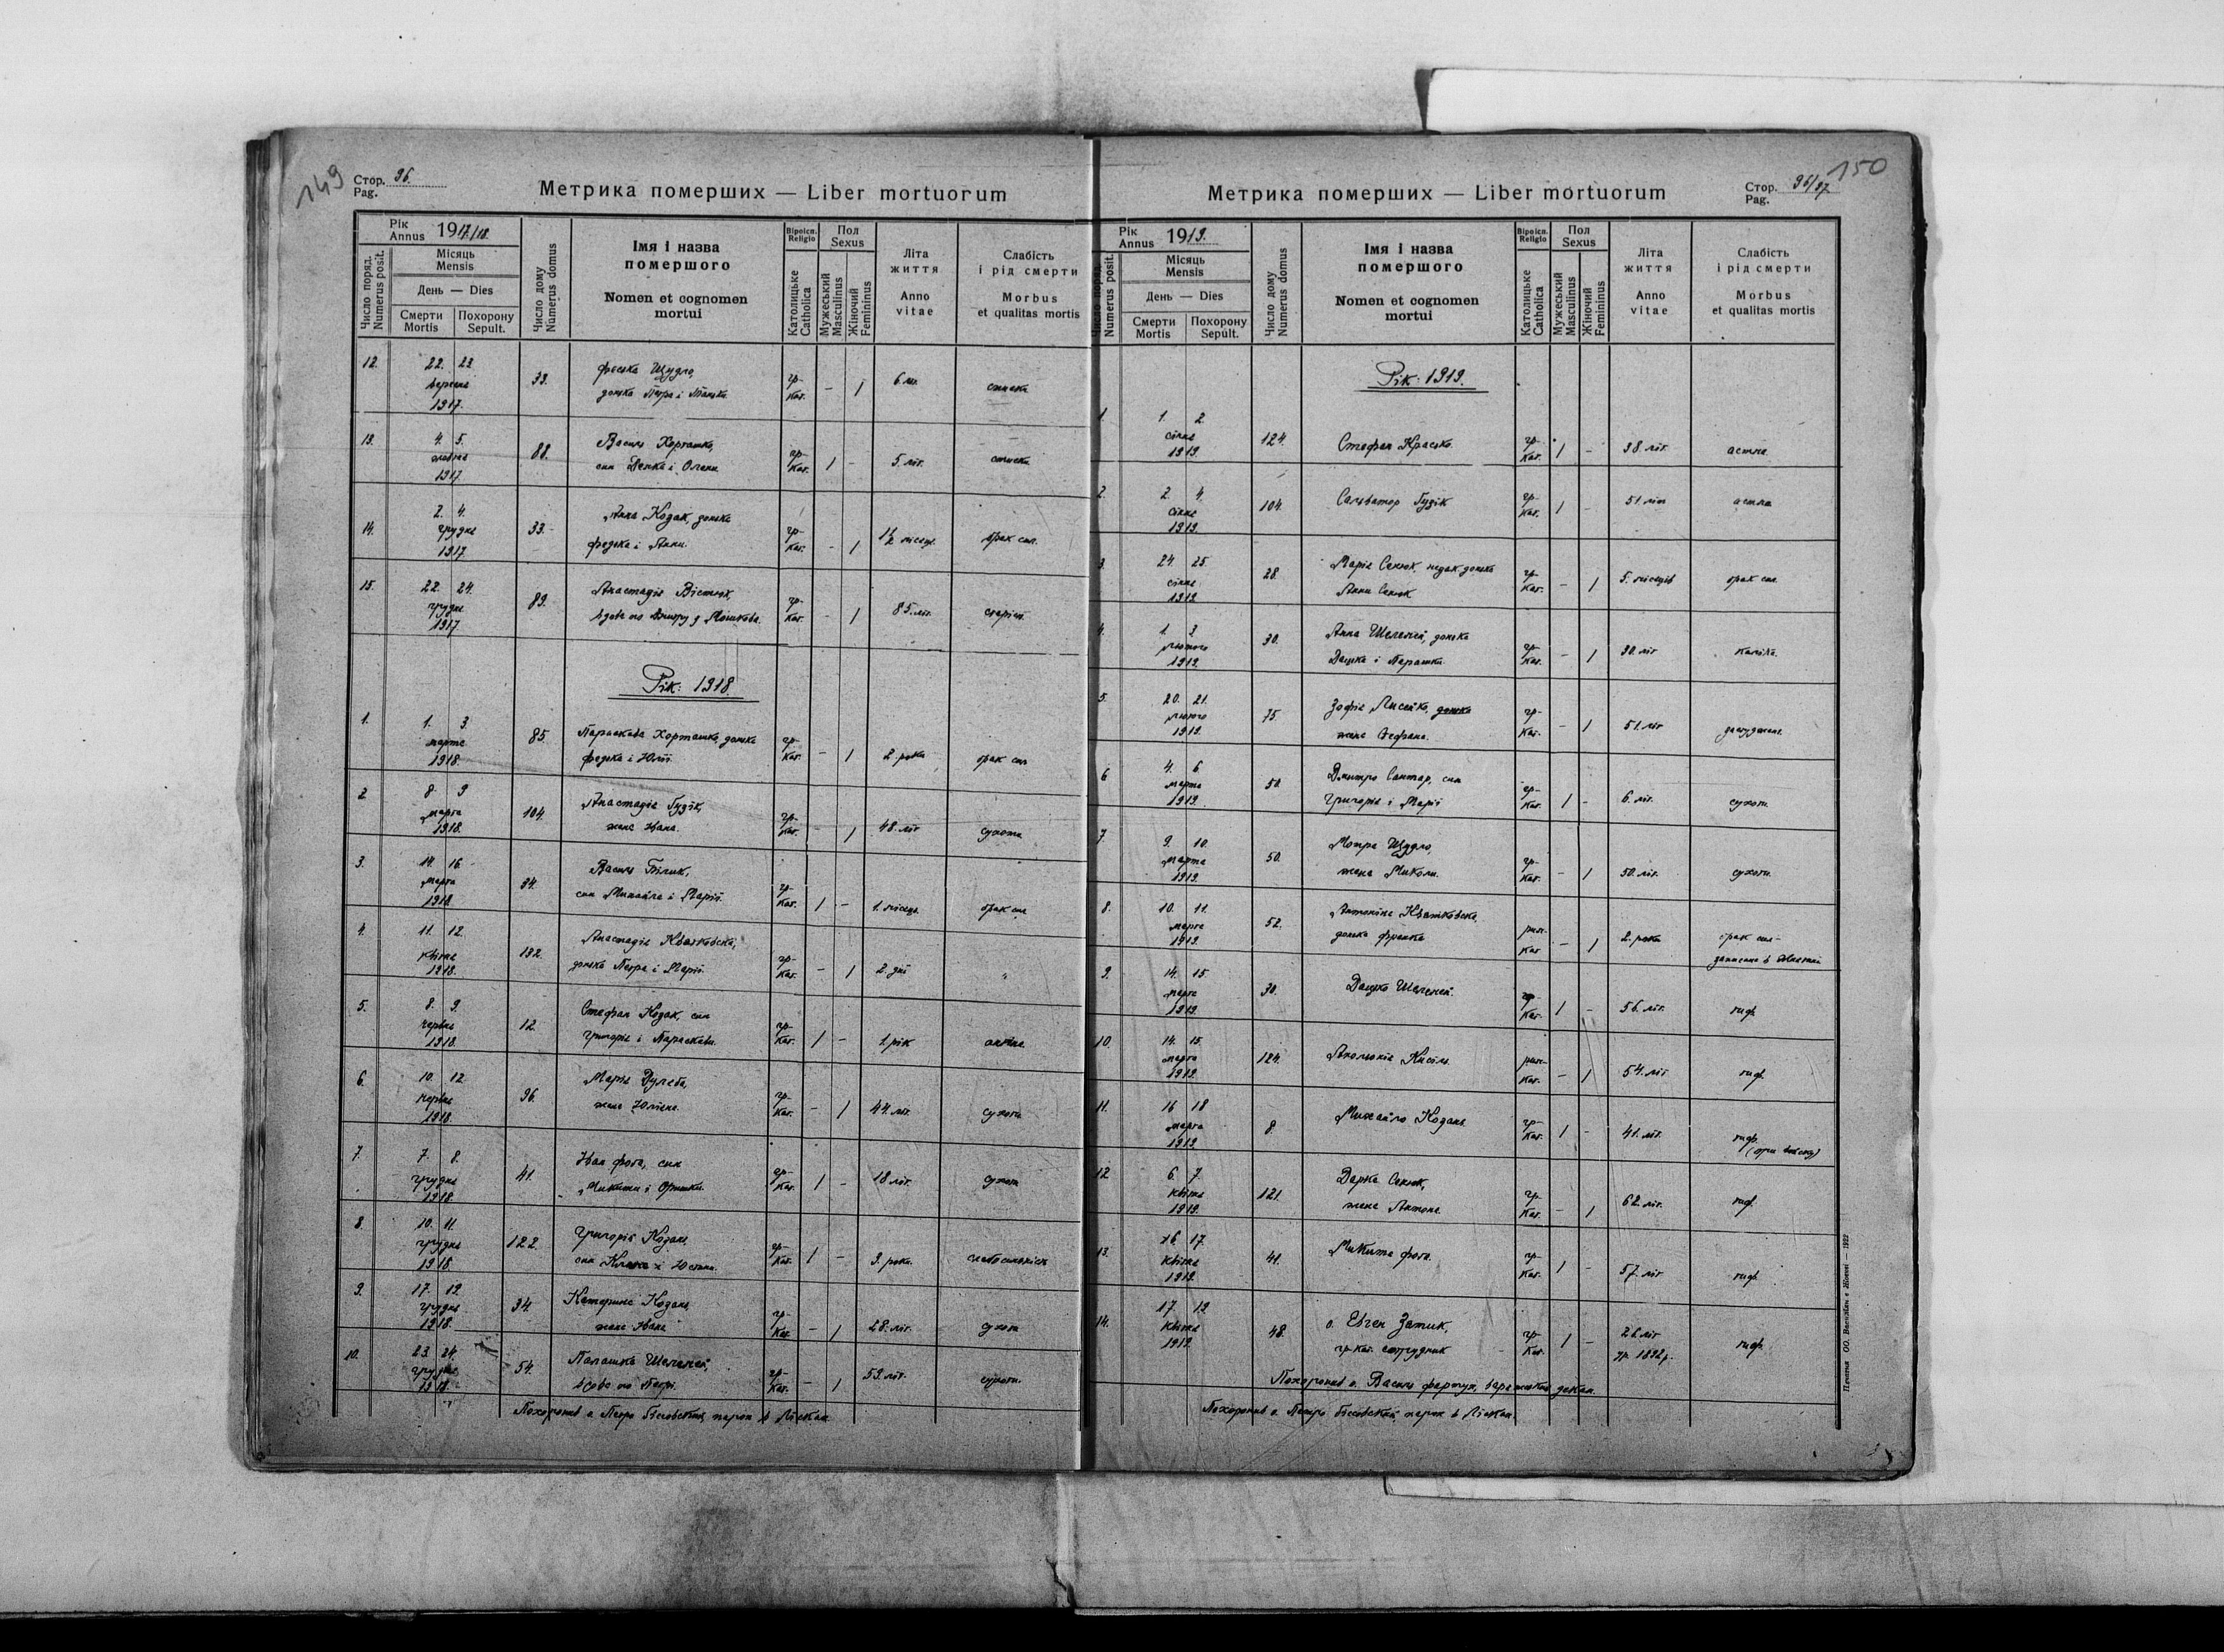 149
Стор. 96.
Pag.
Метрика померших — Liber mortuorum
Рік
Annus 1917/18.
Число поряд.
Numerus posit.
Місяць
Mensis
День — Dies
Смерти
Mortis
Похорону
Sepult.
Число дому
Numerus domus
Імя і назва
помершого
Nomen et cognomen
mortui
Віроісп.
Religio
Католицьке
Catholica
Пол
Sexus
Мужеський
Masculinus
Жіночий
Femininus
Літа
життя
Anno
vitae
Слабість
і рід смерти
Morbus
et qualitas mortis
12. 22. 23 вересня 1917. 33. Феська Щудло, гр-кат. - 1 6
донька Петра і
13. 4. 5. жовтня 1917. 88. Василь Хорташко, гр-кат. 1 - 5. літ.
син Сенька і Олени
14. 2. 4. грудня 1917. 33. Анна Козак, донька гр-кат. - 1 1½ місяця брак сил.
Федька і Анни.
15. 22. 24. грудня 1917 89. Анастазія Вістюк, гр-кат. - 1 85. літ. старість
вдова по Дмитру
Рік: 1918
1. 1. 3. марта 1918. 85. Параскева Хорташко, донька гр-кат. - 1 2 роки брак сил
Федька і Юлії.
2 8 9 марта 1918. 104. Анастазія Гудзік, гр-кат. - 1 48. літ сухоти
жена Івана.
3. 14. 16. марта 1918 34. Василь Білик, гр-кат. 1 - 1. місяць брак сил
син Михайла і Марії.
4. 11. 12. квітня 1918. 132. Анастазія Квятковська, гр-кат. - 1 2. дні "
донька Петра і Марії.
5. 8. 9. червня 1918. 12. Стефан Козак, син гр-кат. 1 - 1 рік
Григорія і Параскеви.
6. 10. 12 червня 1918. 96. Марія Дулеба, гр-кат. - 1 44. літ. сухоти
жена Юліяна.
7. 7. 8. грудня 1918 41. Іван Фота, син гр-кат. 1 - 18 літ. сухоти
Микити і Оришки.
8. 10. 11. грудня 1918 122. Григорій Козань гр-кат. 1 - 3. роки.
син і Юстини.
9. 17. 19. грудня 1918. 34. Катерина Козань гр-кат - 1 28. літ. сухоти
жена Івана
10. 23. 24. грудня 1918. 54. Палашка Шелемей гр-кат. - 1 59. літ. сухоти.
вдова по Петрі.
Похоронив о. Петро парох в Лісках.
150
Стор. 96/97
Pag.
Метрика померших — Liber mortuorum
Рік
Annus 1919.
Число поряд.
Numerus posit.
Місяць
Mensis
День — Dies
Смерти
Mortis
Похорону
Sepult.
Число дому
Numerus domus
Імя і назва
помершого
Nomen et cognomen
mortui
Віроісп.
Religio
Католицьке
Catholica
Пол
Sexus
Мужеський
Masculinus
Жіночий
Femininus
Літа
життя
Anno
vitae
Слабість
і рід смерти
Morbus
et qualitas mortis
Рік: 1919.
1. 1 2 січня 1919. 124. Стефан Красько. гр-кат. 1 - 38. літ. астма.
2. 2 4. січня 1919. 104. Сальватор Гудзік гр-кат. 1 - 51. літ астма
3. 24. 25 січня 1919 28. Марія Секюк, донька гр-кат. - 1 5. місяців брак сил
Анни Секюк
4. 1. 3 лютого 1919. 30. Анна Шелемей, донька гр-кат. - 1 30. літ каліка.
Дацька і Парашки.
5. 20. 21. лютого 1919. 75 Зофія Лисейко, донька гр-кат. - 1 51. літ
жена Стефана.
6 4. 6. марта 1919. 50. Дмитро Сантар, син гр-кат. 1 - 6. літ. сухоти.
Григорія і Марії
7. 9. 10. марта 1919. 50. Мотря Щудло, гр-кат. - 1 50. літ. сухоти.
жена Миколи.
8. 10. 11. марта 1919. 52. Антоніна Квятковська, рим-кат - 1 2. роки брак сил-
донька Франка записана в
9. 14. 15 марта 1919. 30. Дацько Шелемей. гр-кат. 1 - 56. літ. тиф.
10. 14. 15. марта 1919. 124. Аполонія Кисіль. рим-кат. - 1 54. літ тиф.
11. 16 18 марта 1919 8. Михайло Козань гр-кат. 1 - 41. літ. тиф.
12 6. 7 квітня 1919. 121. Дарка Секюк, гр-кат. - 1 62. літ. тиф.
жена Антона
13. 16. 17. квітня 1919. 41. Микита Фота. гр-кат. 1 - 57. літ тиф.
14. 17. 19 квітня 1919. 48. о. Евген Затик, гр-кат. 1 - 26 літ тиф.
гр-кат. сотрудник ур. 1892 р.
Похоронив о. Василь декан.
Похоронив о. Петро парох в Лісках.
Печатня ОО. Василіян в Жовкві — 1922